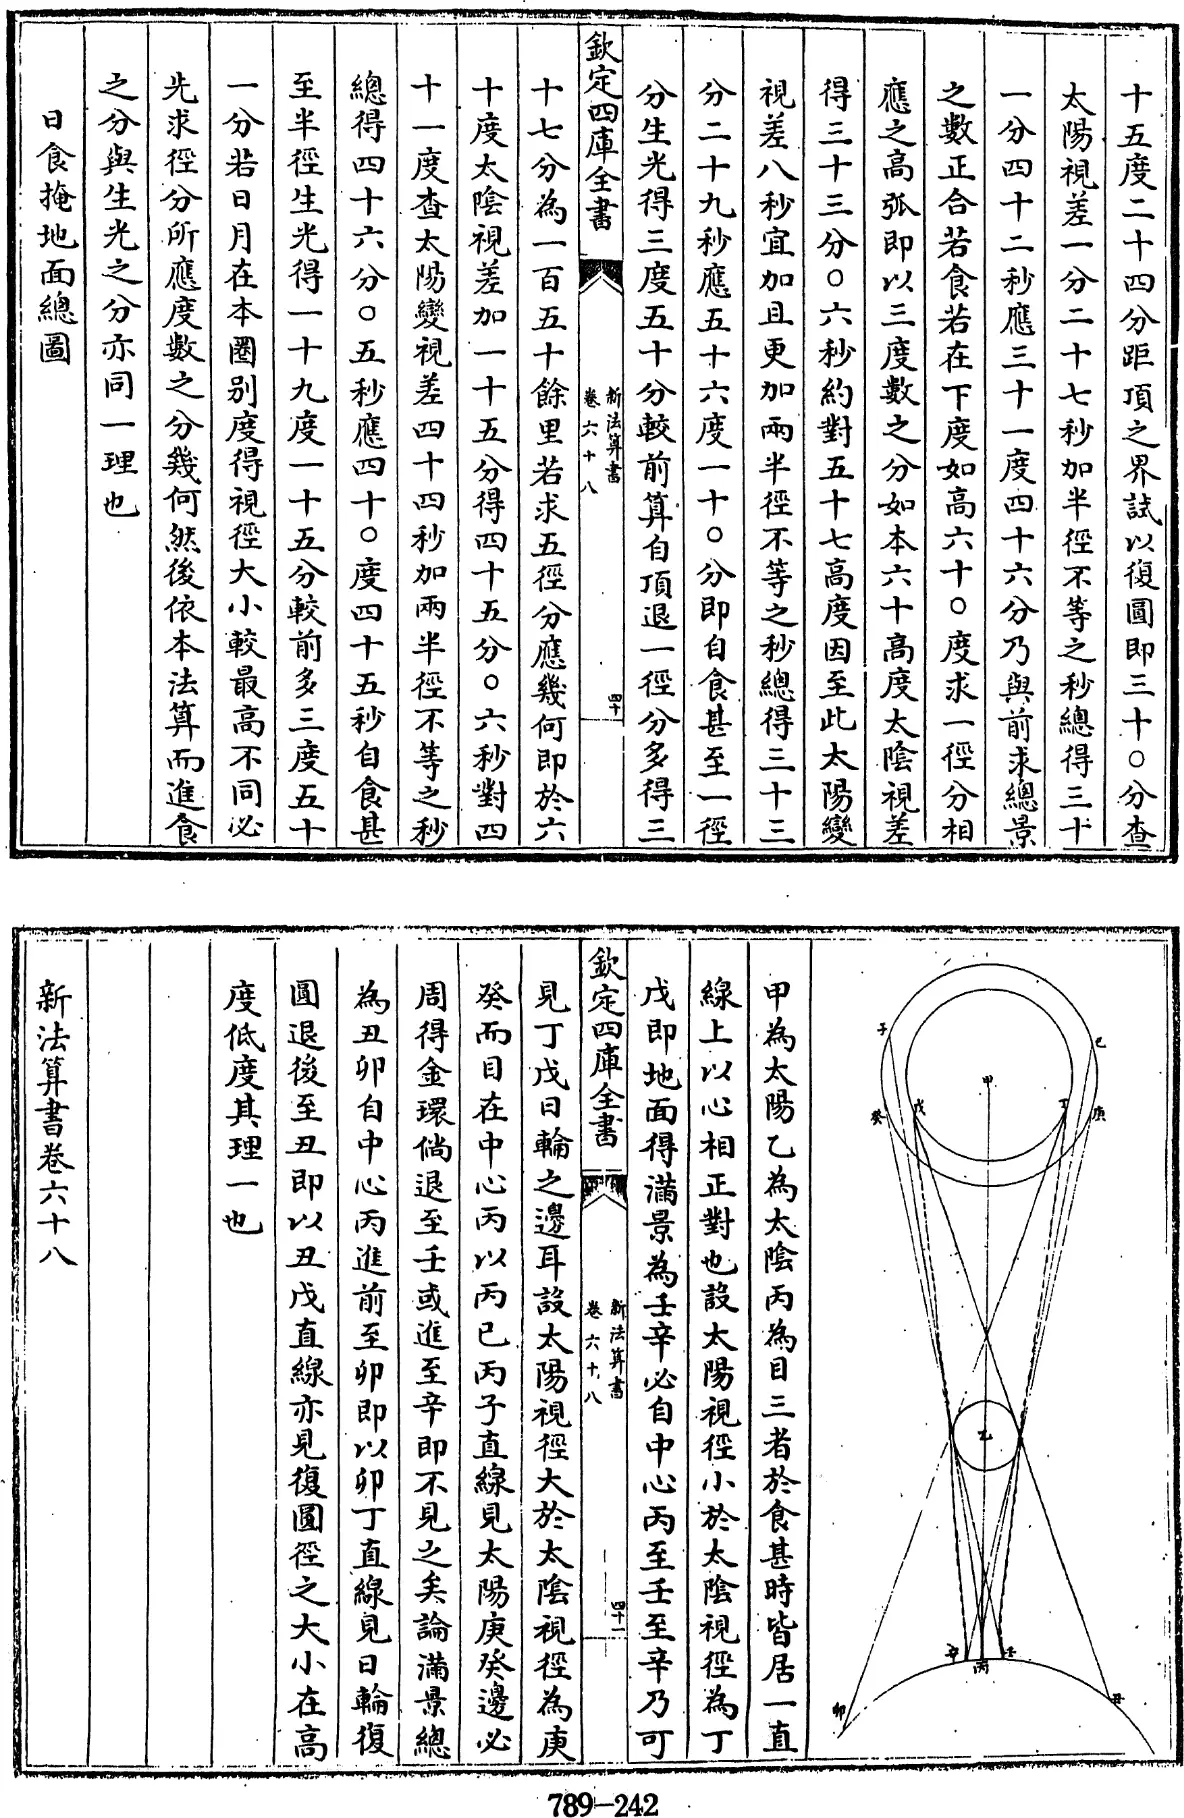 十五度二十四分距頂之界試以復圓即三十〇分查
太陽視差一分二十七秒加半徑不等之秒總得三十
一分四十二秒應三十一度四十六分乃與前求總景
之數正合若食若在下度如高六十〇度求一徑分相
應之高弧即以三度數之分如本六十高度太陰視差
得三十三分〇六秒約對五十七高度因至此太陽變
視差八秒宜加且更加兩半徑不等之秒總得三十三
分二十九秒應五十六度一十〇分即自食甚至一徑
分生光得三度五十分較前算自頂退一徑分多得三
欽定四庫全書
新法算書
卷六十八
四十
十七分為一百五十餘里若求五徑分應幾何即於六
十度太陰視差加一十五分得四十五分〇六秒對四
十一度查太陽變視差四十四秒加兩半徑不等之秒
總得四十六分〇五秒應四十〇度四十五秒自食甚
至半徑生光得一十九度一十五分較前多三度五十
一分若日月在本圈别度得視徑大小較最高不同必
先求徑分所應度數之分幾何然後依本法算而進食
之分與生光之分亦同一理也
日食掩地面總圖
子
己
甲
癸
戊
丁
庚
乙
辛
丙
壬
卯
丑
甲為太陽乙為太陰丙為目三者於食甚時皆居一直
線上以心相正對也設太陽視徑小於太陰視徑為丁
戊即地面得滿景為壬辛必自中心丙至壬至辛乃可
欽定四庫全書
新法算書
卷六十八
四十一
見丁戊日輪之邊耳設太陽視徑大於太陰視徑為庚
癸而目在中心丙以丙己丙子直線見太陽庚癸邊必
周得金環倘退至壬或進至辛即不見之矣論滿景總
為丑卯自中心丙進前至卯即以卯丁直線見日輪復
圓退後至丑即以丑戊直線亦見復圓徑之大小在高
度低度其理一也
新法算書卷六十八
789-242